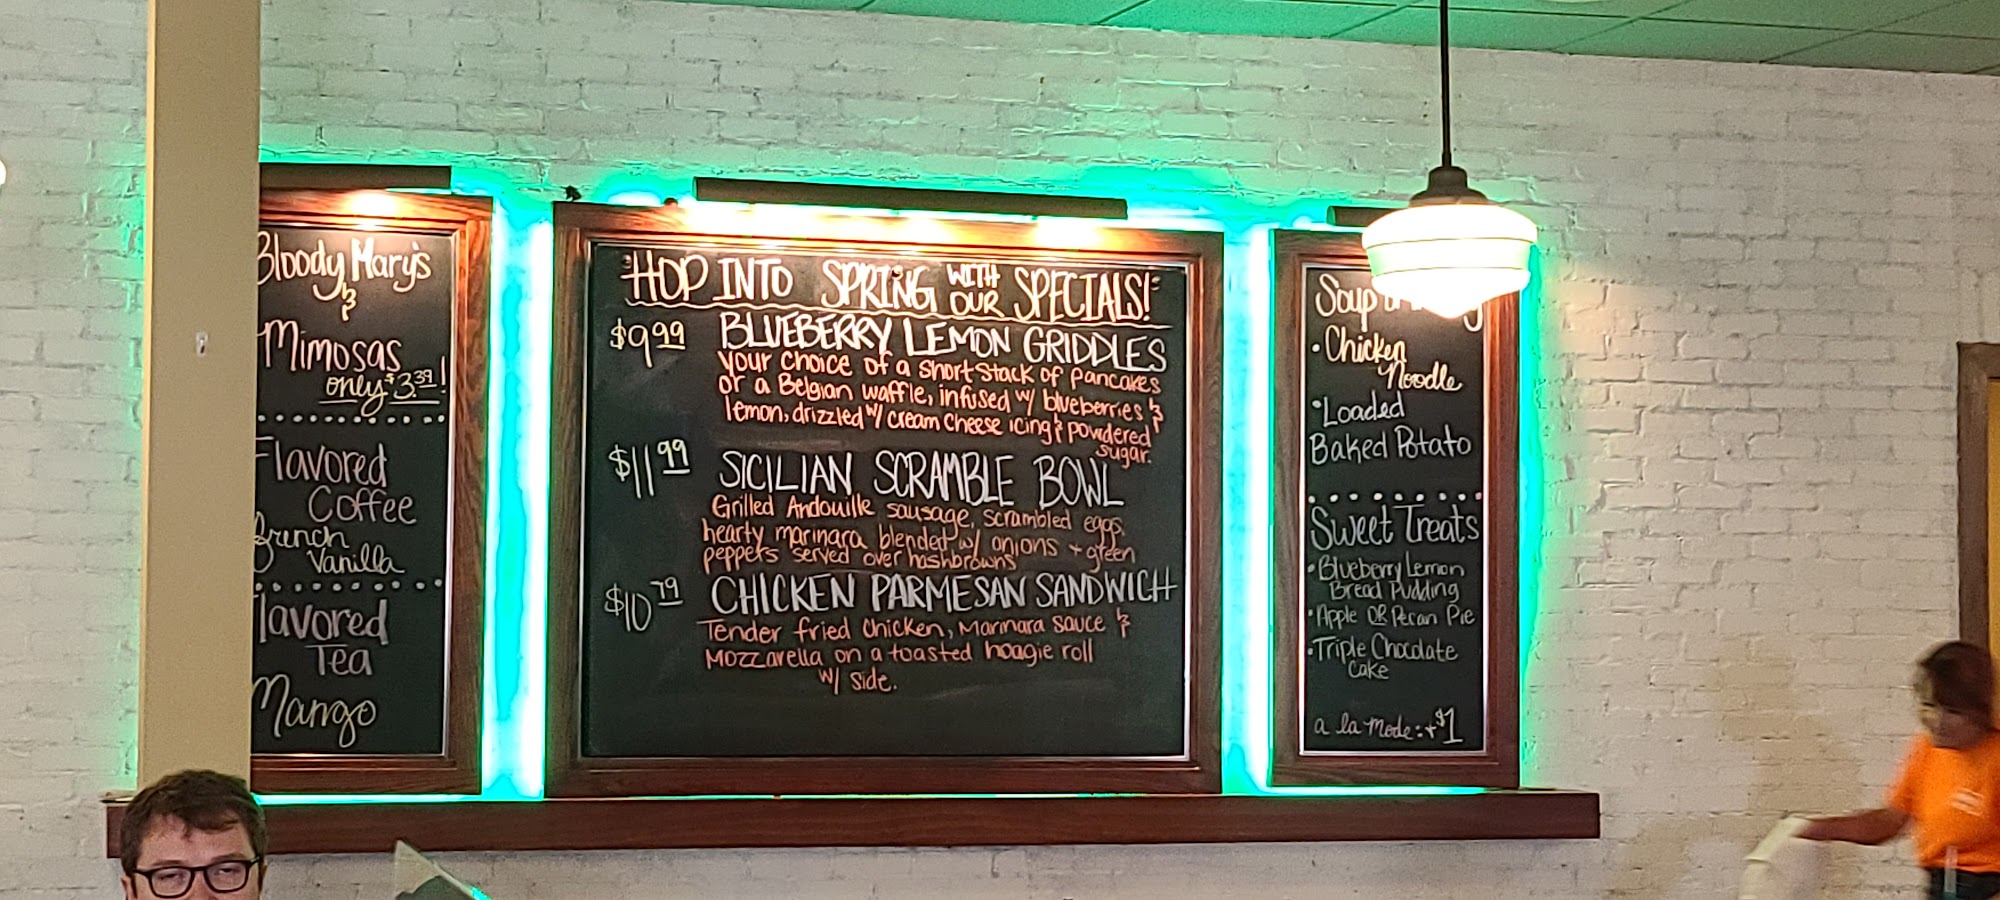 Bloody Mary's
&
Mimosas
only $3.39!
Flavored
Coffee
French
Vanilla
Flavored
Tea
Mango
"HOP INTO SPRING WITH OUR SPECIALS!"
$9.99 BLUEBERRY LEMON GRIDDLES
Your choice of a short stack of pancakes
or a Belgian waffle, infused w/ blueberries &
lemon, drizzled w/ cream cheese icing & powdered
sugar.
$11.99 SICILIAN SCRAMBLE BOWL
Grilled Andouille sausage, scrambled eggs,
hearty marinara blended w/ onions + green
peppers served over hashbrowns
$10.79 CHICKEN PARMESAN SANDWICH
Tender fried chicken, Marinara sauce &
Mozzarella on a toasted hoagie roll
w/ side.
Soup
• Chicken
Noodle
• Loaded
Baked Potato
Sweet Treats
• Blueberry Lemon
Bread Pudding
• Apple OR Pecan Pie
• Triple Chocolate
Cake
a la mode: +$1